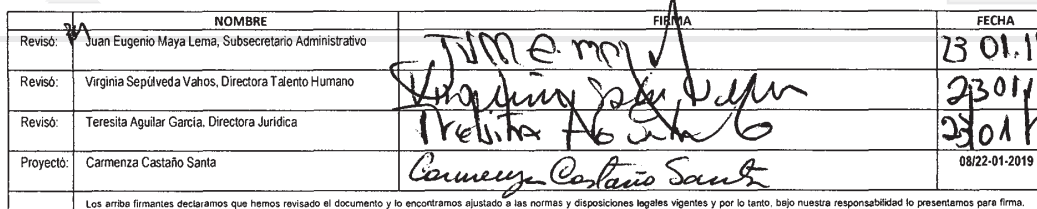 NOMBRE FIRMA FECHA
Revisó: Juan Eugenio Maya Lema, Subsecretario Administrativo 23 01.1
Revisó: Virginia Sepúlveda Vahos, Directora Talento Humano Virginia 2301
Revisó: Teresita Aguilar García, Directora Jurídica Teresita 23 01
Proyectó: Carmenza Castaño Santa Carmenza Castaño Santa 08/22-01-2019
Los arriba firmantes declaramos que hemos revisado el documento y lo encontramos ajustado a las normas y disposiciones legales vigentes y por lo tanto, bajo nuestra responsabilidad lo presentamos para firma.